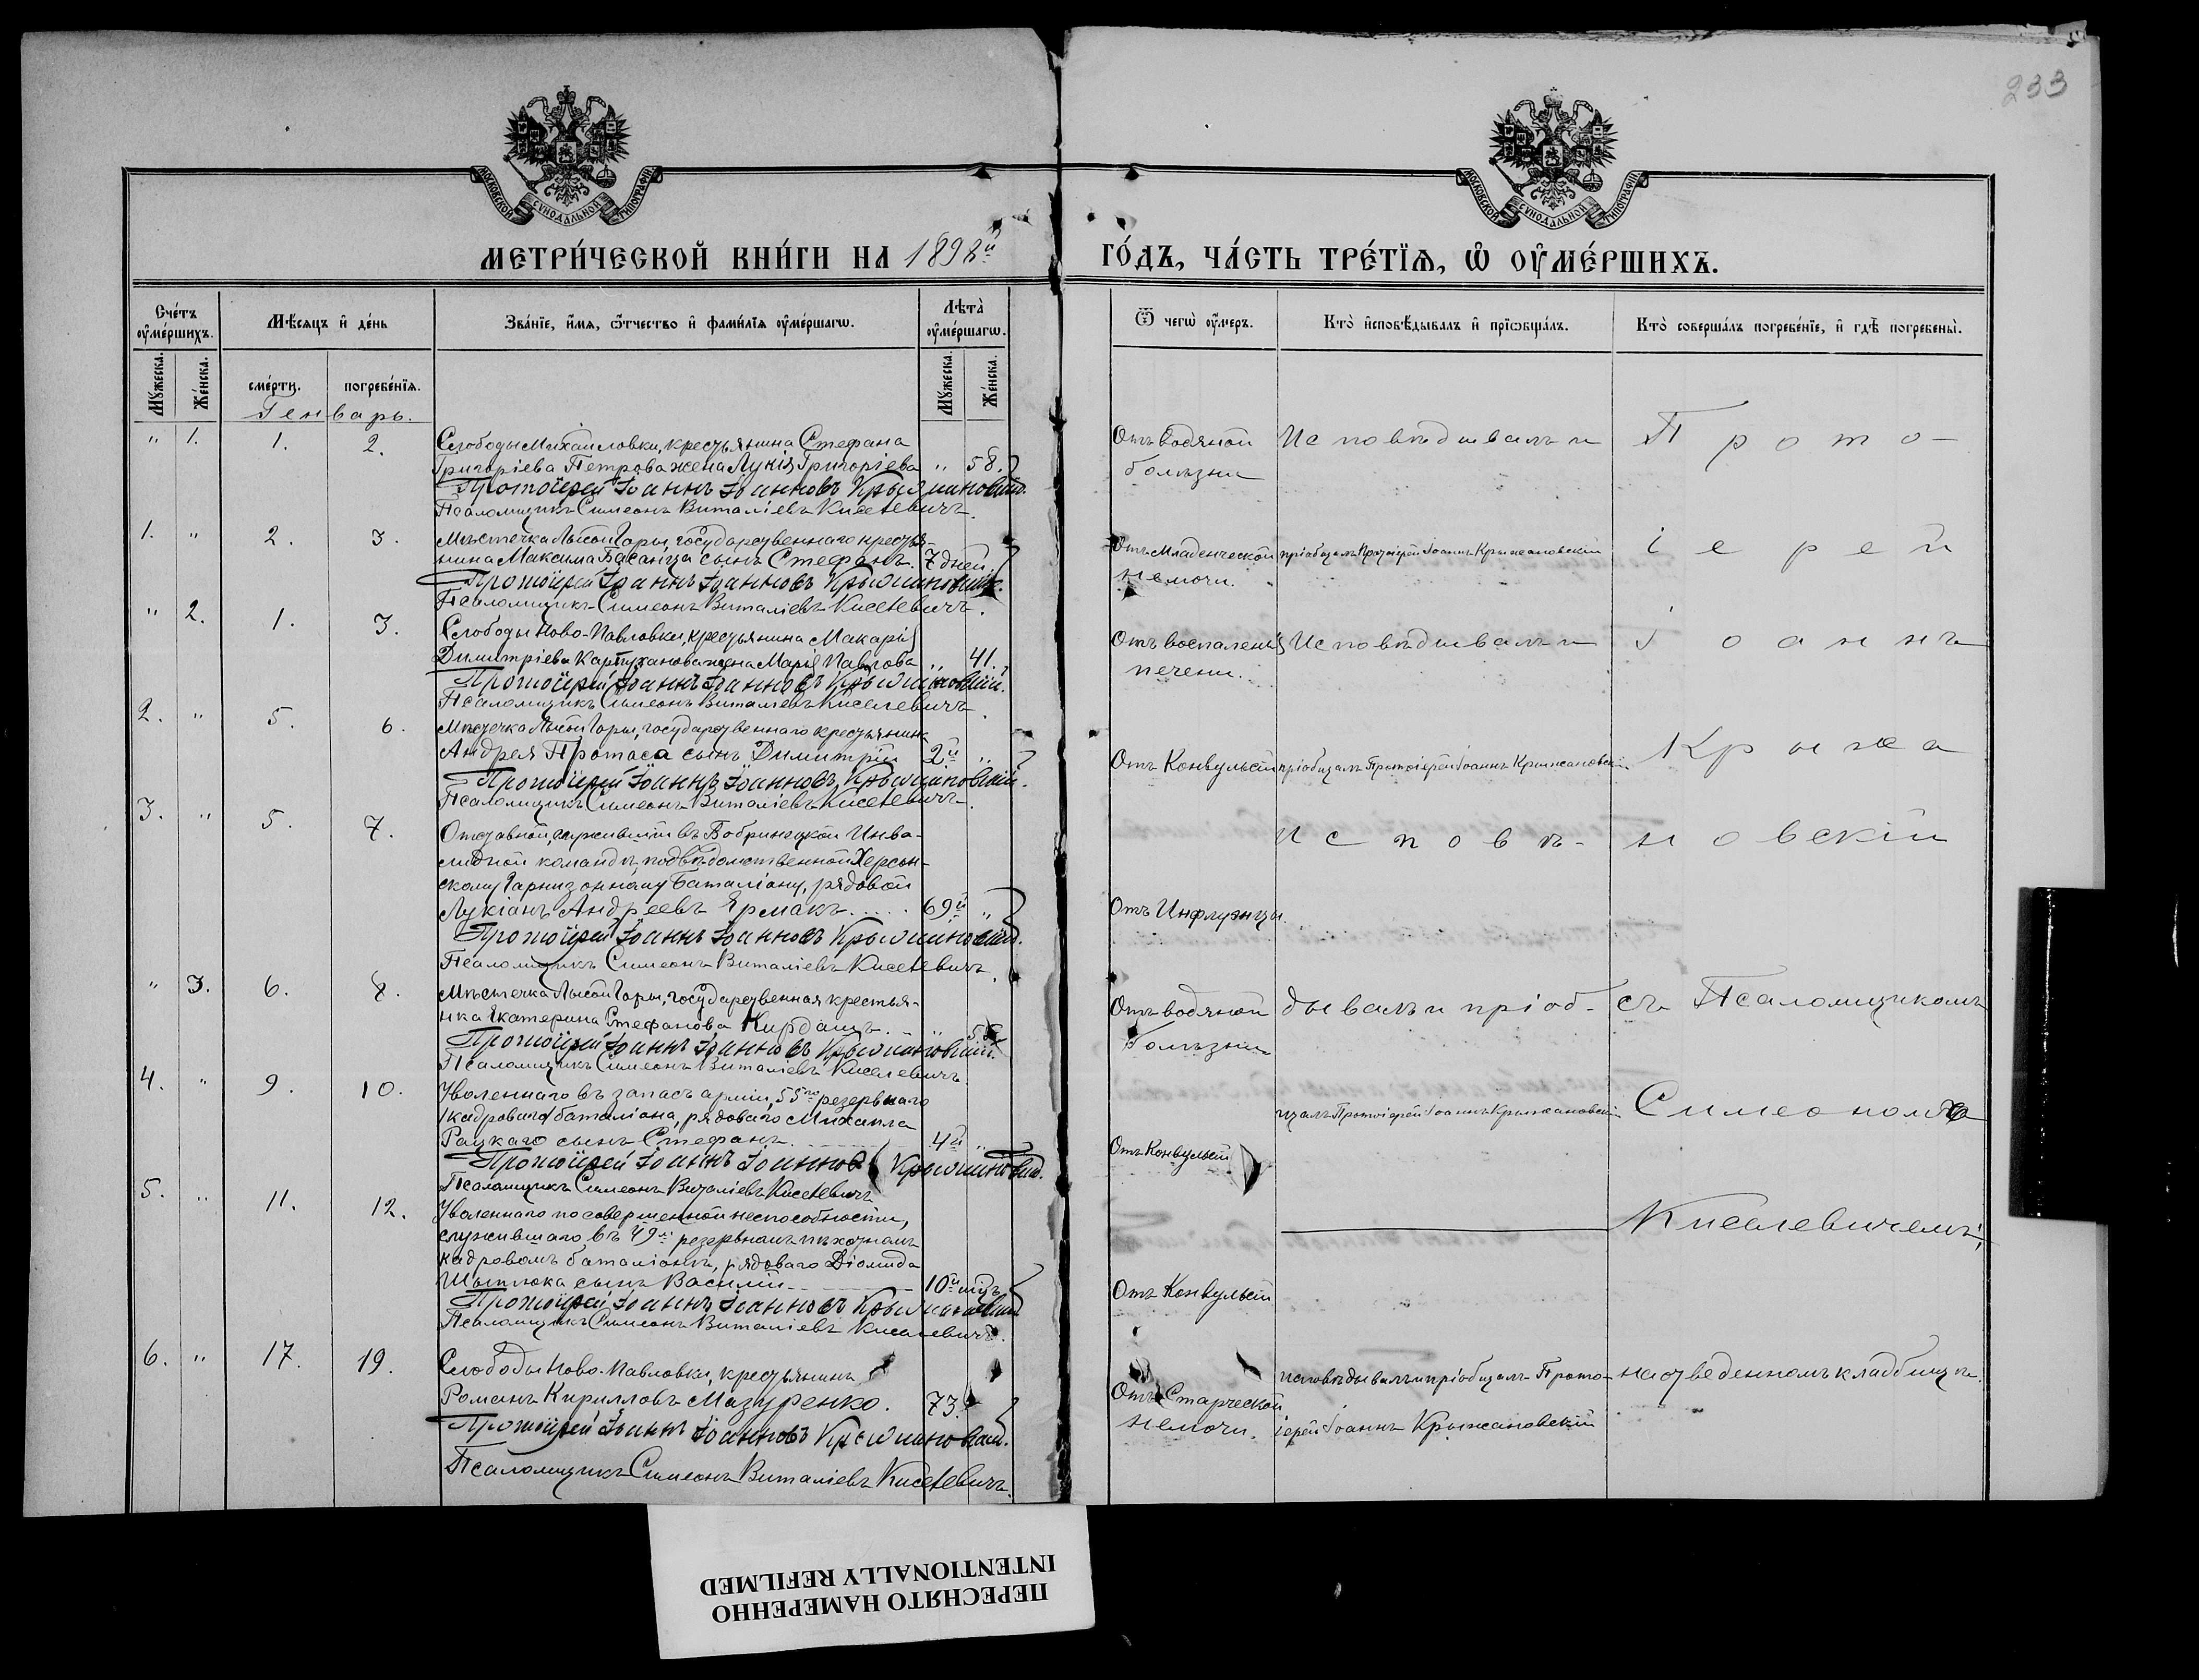 233
МОСКОВСКОЙ СѴНОДАЛЬНОЙ ТИПОГРАФІИ
МОСКОВСКОЙ СѴНОДАЛЬНОЙ ТИПОГРАФІИ
МЕТРИ́ЧЕСКОЙ КНИ́ГИ НА 1898й
ГО́ДЪ, ЧА́СТЬ ТРЕ́ТЇЯ, Ѡ ОУМЕ́РШИХЪ.
Сче́тъ оуме́ршихъ.
Мꙋжеска.
Же́нска.
Мѣ́сяцъ и де́нь
сме́рти.
погребе́нїя.
Зва́нїе, и́мя, ѻ́тчество и фами́лїя оуме́ршагѡ.
Лѣта̀ оуме́ршагѡ.
Мꙋжеска.
Же́нска.
Ѿ чегѡ̀ оу́меръ.
Кто̀ и́сповѣ́дывалъ и прїѡбща́лъ.
Кто̀ соверша́лъ погребе́нїе, и гдѣ̀ погребены̀.
Генварь.
" 1. 1. 2.
Слободы Михайловки, крестьянина Стефана
Григоріева Петрова жена Лукія Григоріева " 58.
Протоіерей Іоаннъ Іоанновъ Крыжановскій.
Псаломщикъ Симеонъ Виталіевъ Киселевичъ.
Отъ водяной
болѣзни
Исповѣдывалъ и
Прото-
1. " 2. 3.
Мѣстечка Лысой Горы, государственнаго кресть-
янина Максима Басанца сынъ Стефанъ. 7 дней.
Протоіерей Іоаннъ Іоанновъ Крыжановскій.
Псаломщикъ Симеонъ Виталіевъ Киселевичъ.
Отъ Младенческой
немочи.
пріобщалъ Протоіерей Іоаннъ Крыжановскій
іерей
" 2. 1. 3.
Слободы Ново-Павловки, крестьянина Макарія
Димитріева Картузанова жена Марія Павлова " 41.
Протоіерей Іоаннъ Іоанновъ Крыжановскій.
Псаломщикъ Симеонъ Виталіевъ Киселевичъ.
Отъ воспаленія
печени.
Исповѣдывалъ и
Іоаннъ
2. " 5. 6.
Мѣстечка Лысой Горы, государственнаго крестьянина
Андрея Протаса сынъ Димитрій 2й "
Протоіерей Іоаннъ Іоанновъ Крыжановскій.
Псаломщикъ Симеонъ Виталіевъ Киселевичъ.
Отъ Конвульсій
пріобщалъ Протоіерей Іоаннъ Крыжановскій
Крыжа
3. " 5. 7.
Отставной, служившій въ Бобринецкой Инва-
лидной командѣ, подвѣдомственной Херсон-
скому Гарнизонному баталіону, рядовой
Лукіанъ Андреевъ Ермакъ..... 69й "
Протоіерей Іоаннъ Іоанновъ Крыжановскій.
Псаломщикъ Симеонъ Виталіевъ Киселевичъ.
Отъ Инфлуэнцы.
Исповѣ-
новскій
" 3. 6. 8.
Мѣстечка Лысой Горы, государственная крестья-
нка Екатерина Стефанова Кирдашъ. "
Протоіерей Іоаннъ Іоанновъ Крыжановскій.
Псаломщикъ Симеонъ Виталіевъ Киселевичъ.
Отъ водяной
болѣзни
дывалъ и пріоб-
съ Псаломщикомъ
4. " 9. 10.
Уволеннаго въ запасъ арміи, 55го резервнаго
кадроваго баталіона, рядоваго Михаила
Рацкаго сынъ Стефанъ. 4й "
Протоіерей Іоаннъ Іоанновъ Крыжановскій.
Псаломщикъ Симеонъ Виталіевъ Киселевичъ
Отъ Конвульсій
щалъ Протоіерей Іоаннъ Крыжановскій
Симеономъ
5. " 11. 12.
Уволеннаго по совершенной неспособности,
служившаго въ 49мъ резервномъ пѣхотномъ
кадровомъ баталіонѣ, рядоваго Діомида
сынъ Василій 10й мѣ.
Протоіерей Іоаннъ Іоанновъ Крыжановскій
Псаломщикъ Симеонъ Виталіевъ Киселевичъ.
Отъ Конвульсій
Киселевичемъ,
6. " 17. 19.
Слободы Ново-Павловки, крестьянинъ
Романъ Кирилловъ Мазуренко. 73.
Протоіерей Іоаннъ Іоанновъ Крыжановскій.
Псаломщикъ Симеонъ Виталіевъ Киселевичъ.
Отъ Старческой
немочи.
исповѣдывалъ и пріобщалъ Прото-
іерей Іоаннъ Крыжановскій
на отведенномъ кладбищѣ.
ПЕРЕСНЯТО НАМЕРЕННО
INTENTIONALLY REFILMED